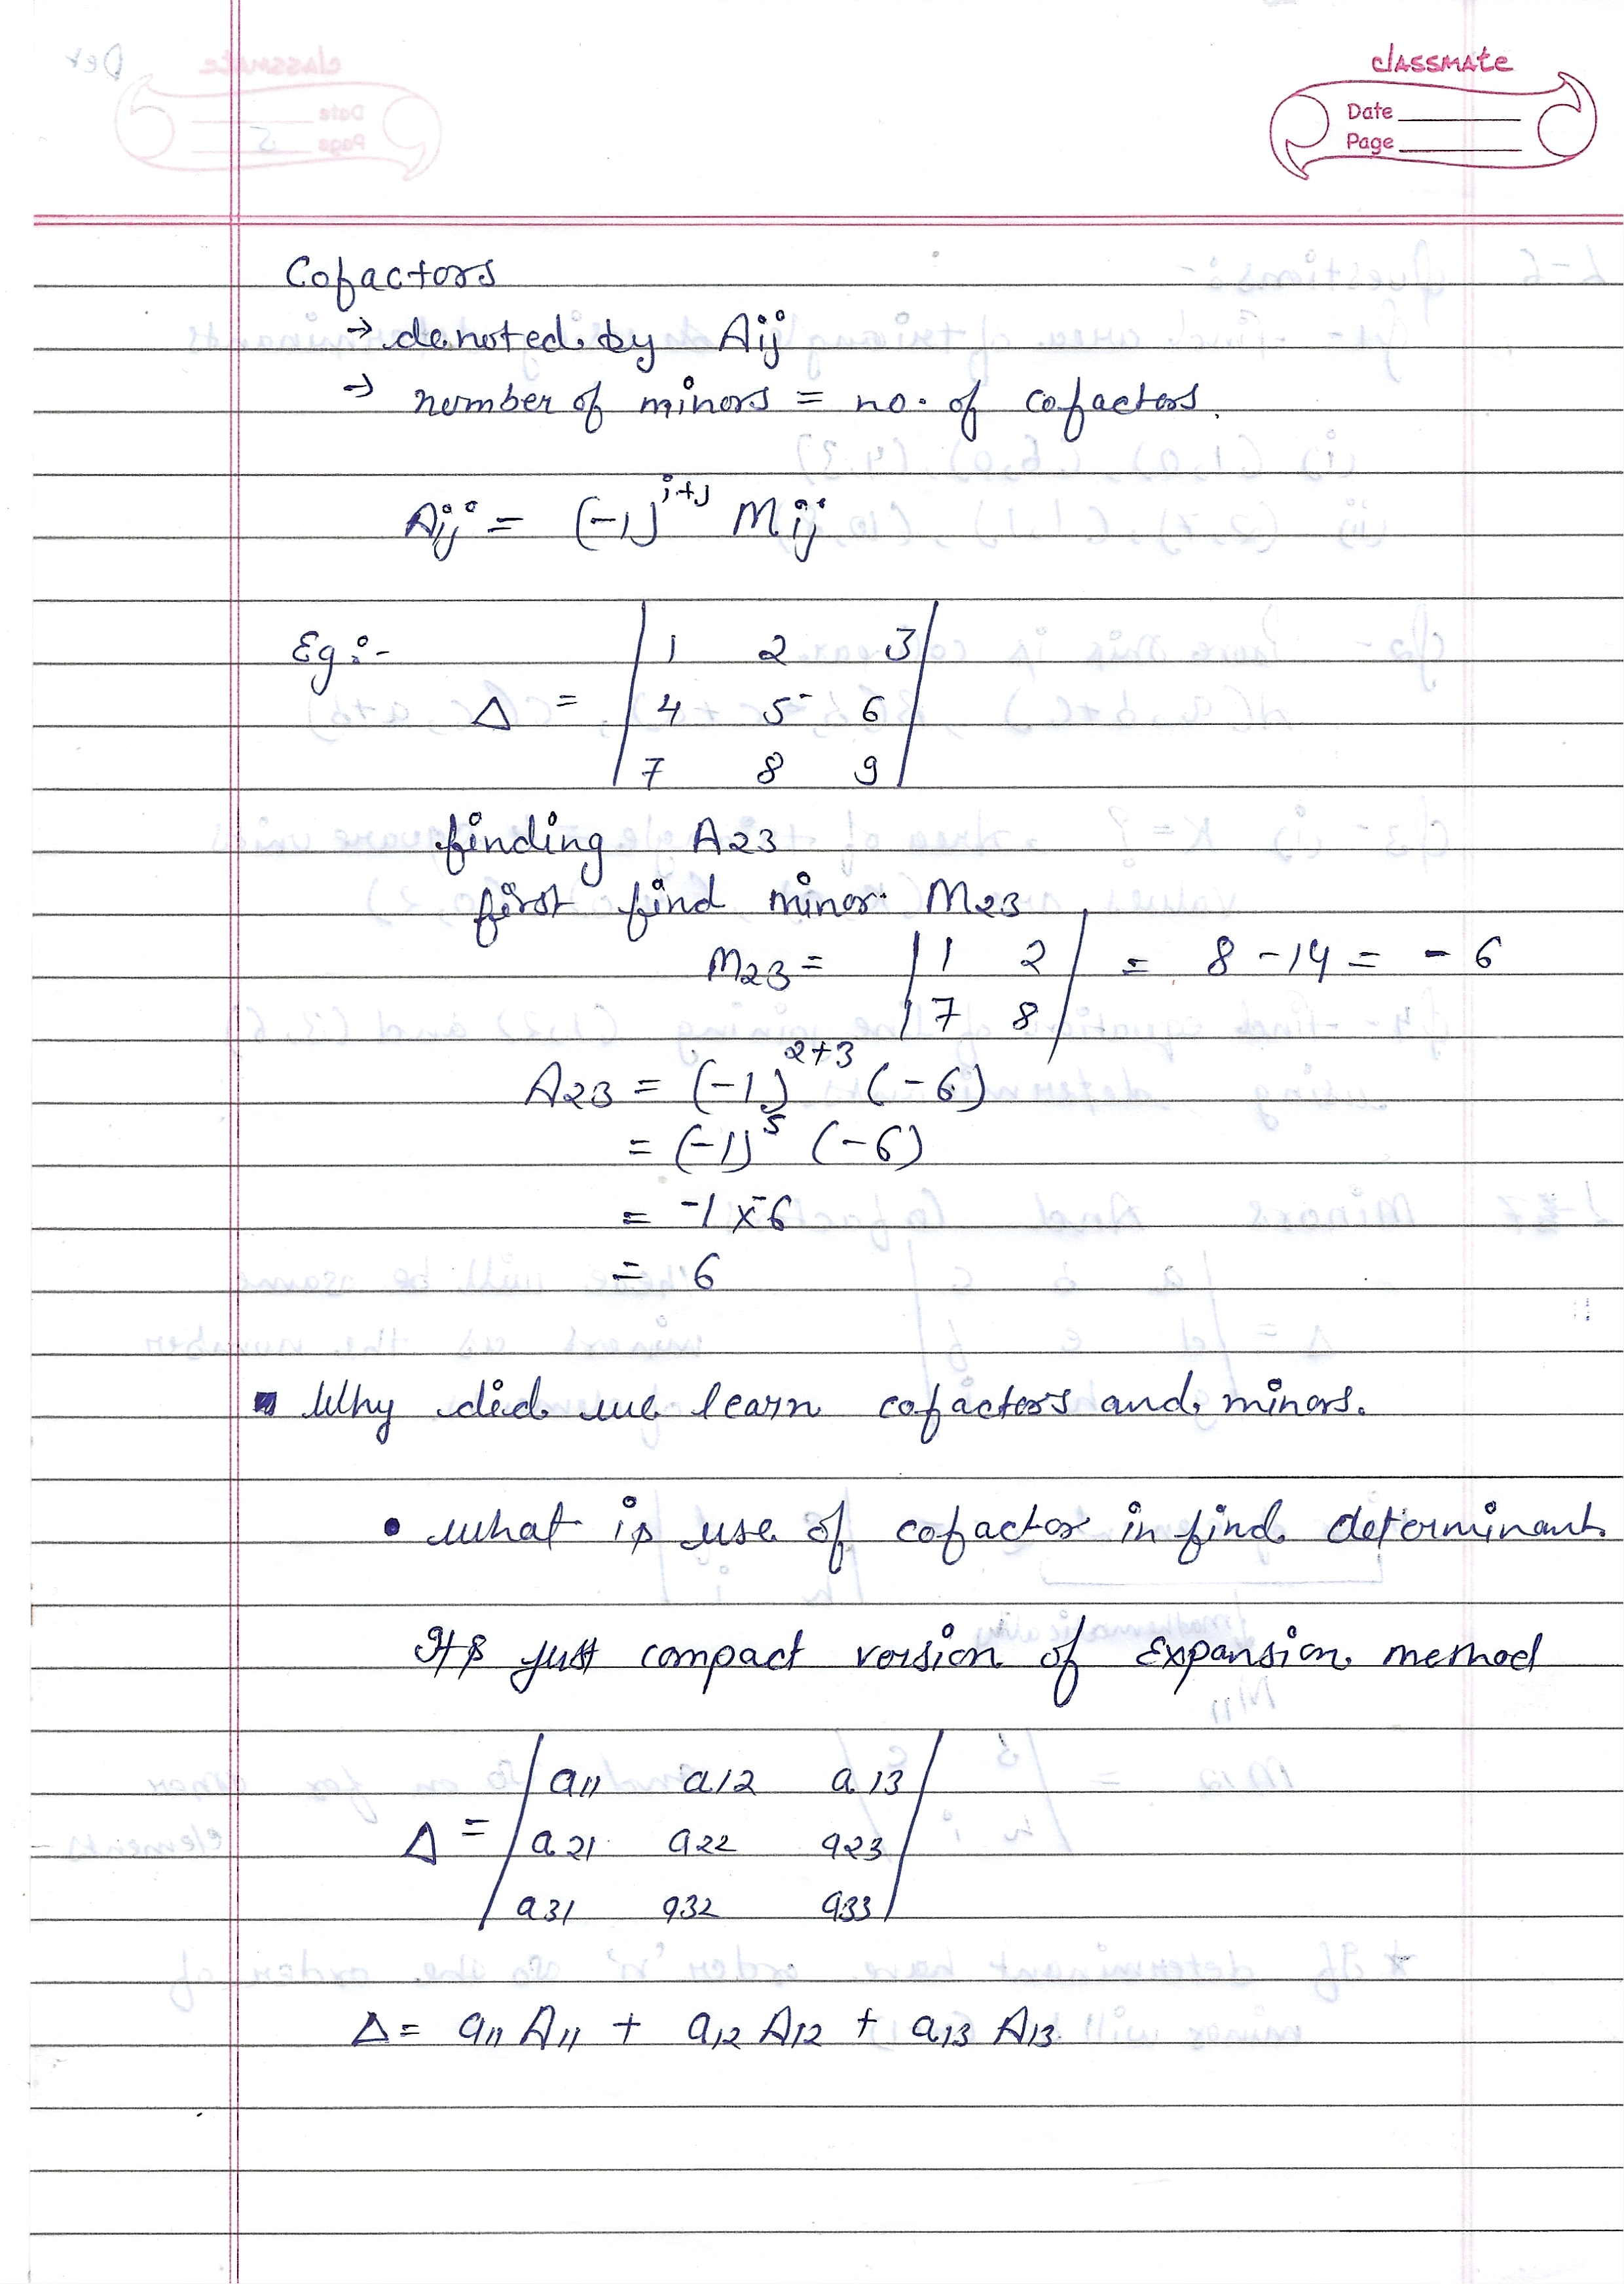 classmate
Date
Page
Cofactors
→ denoted by Aij
→ number of minors = no. of cofactors.
Aij = (-1)^i+j Mij
Eg:-
Δ = | 1 2 3 |
| 4 5 6 |
| 7 8 9 |
finding A23
first find minor M23
M23 = | 1 2 | = 8 - 14 = - 6
| 7 8 |
A23 = (-1)^2+3 (-6)
= (-1)^5 (-6)
= -1 x -6
= 6
Why did we learn cofactors and minors.
• what is use of cofactor in find determinant.
Its just compact version of expansion method
Δ = | a11 a12 a13 |
| a21 a22 a23 |
| a31 a32 a33 |
Δ = a11 A11 + a12 A12 + a13 A13